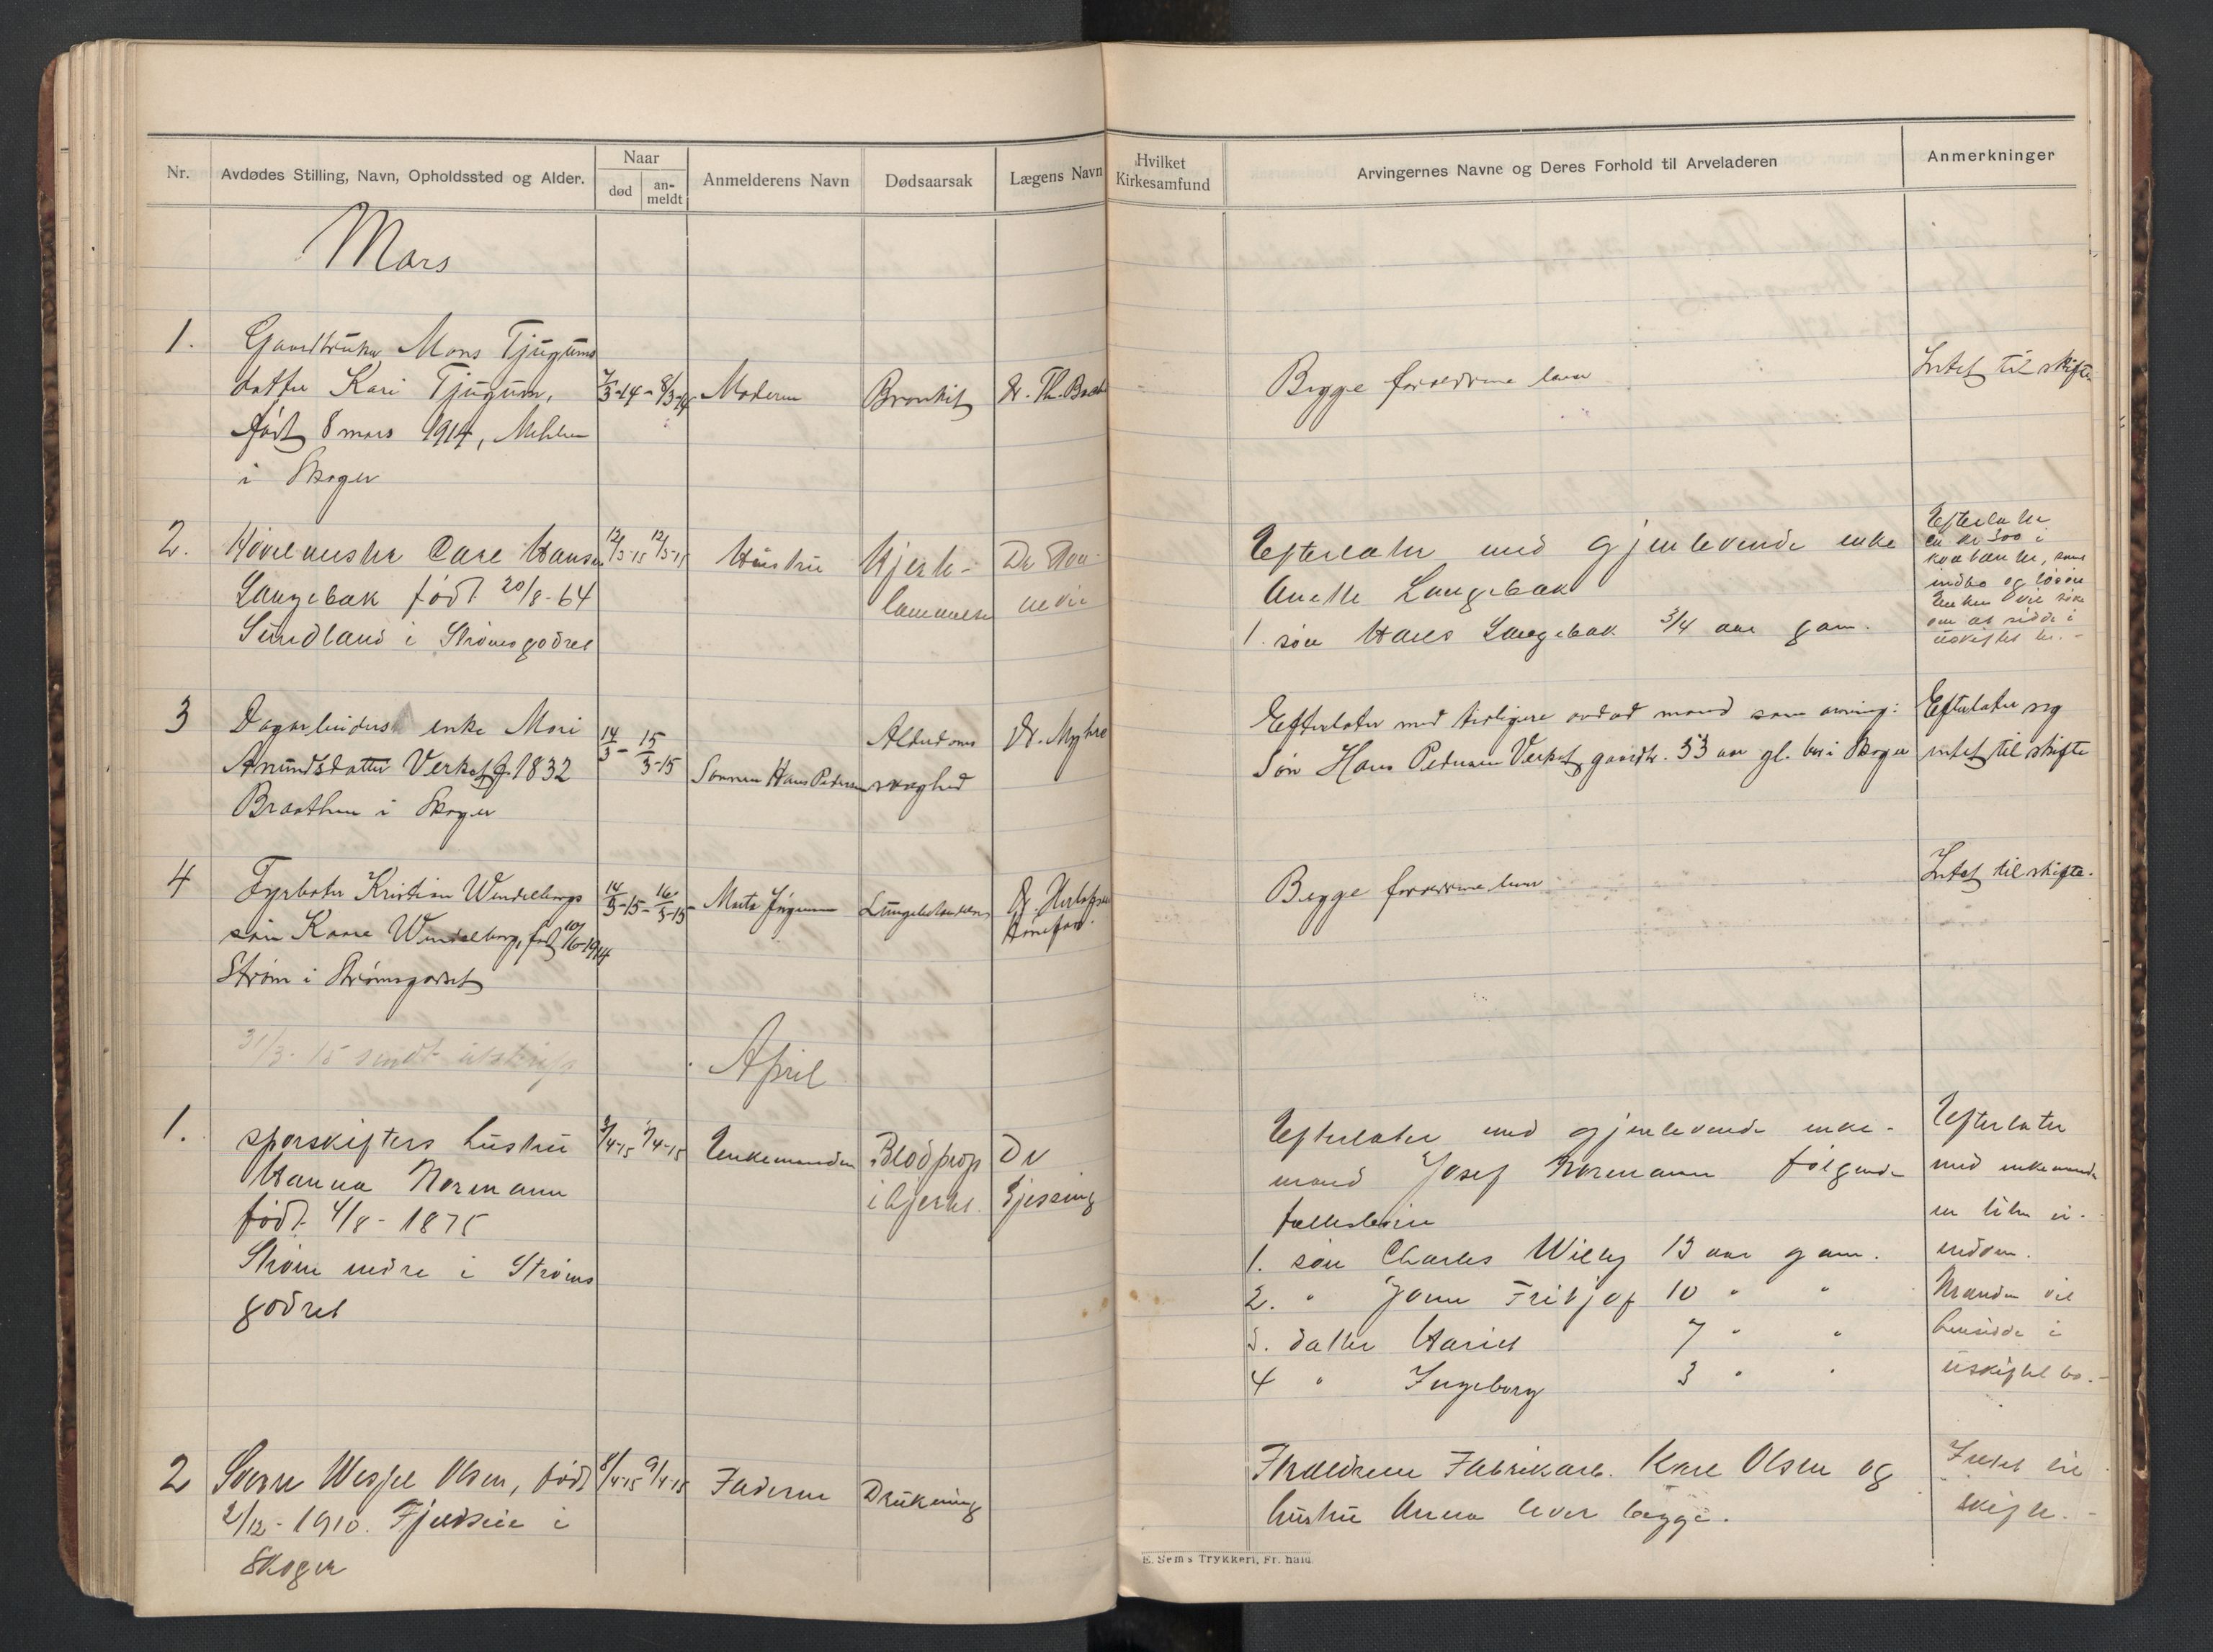 Nr.
Avdødes Stilling, Navn, Opholdssted og Alder.
Naar
død
an-
meldt
Anmelderens Navn
Dødsaarsak
Lægens Navn
Hvilket
Kirkesamfund
Arvingernes Navne og Deres Forhold til Arveladeren
Anmerkninger
Mars
1.
Gaardbruker Mons Tjugums
datter Kari Tjugum,
født 8 mars 1914,
i Skoger
7/3-14 - 8/3-14
Moderen
Bronkit
Dr. Th.
Begge forældrene lever
Intet til skifte
2.
Høvelmester Carl Hansen
Langebak født 20/8-64
Sundland i Strømsgodset
12/3-15 12/3-15
Hustru
Hjerte-
lammelse
Dr
Efterlater med gjenlevende enke
Anette Langebak
1. søn Hans Langebak 3/4 aar gam.
Efterlater
ca kr 300 i
kontanter, samt
indbo og løsøre
Enken vil søke
om at sidde i
uskiftet bo. -
3
Dagarbeiders enke Mari
Amundsdatter Verket f. 1832
Braathen i Skoger
14/3 - 15/3-15
Sønnen Hans Pedersen
Alderdoms
svaghed
Dr. Myhre
Efterlater med tidligere avdød mand som arving:
Søn Hans Pedersen Verket, gaardbr. 53 aar gl. bor i Skoger
Efterlater sig
intet til skifte
4
Fyrbøter Kristian Wendelborgs
søn Kaare Wendelborg, født 10/6-1914
Strøm i Strømsgodset
14/3-15 - 16/3-15
Lungebetændelse
Dr.
Hønefoss.
Begge forældrene lever
Intet til skifte.
31/3-15 sendt utskrift
April
1.
sporskifters hustru
Hanna Normann
født 4/8-1875
Strøm nedre i Strøms
godset
3/4-15 7/4-15
Enkemanden
Blodprop
i hjertet.
Dr
Gjessing
Efterlater med gjenlevende enke-
mand Josef Normann følgende
fællesbarn
1. søn Charles Willy 13 aar gam.
2. " John Fritjof 10 " "
3. datter Hariet 7 " "
4 " Ingeborg 3 " "
Efterlater
med enkemanden
en liten ei-
endom.
Manden vil
hensidde i
uskiftet bo.-
2
Sverre Wessel Olsen, født
2/12-1910. Fjeldseie i
Skoger
8/4-15 9/4-15
Faderen
Drukning
Forældrene Fabrikarb. Karl Olsen og
hustru Anna lever begge.
Intet til
skifte. -
E. Sem's Trykkeri, Fr.hald.